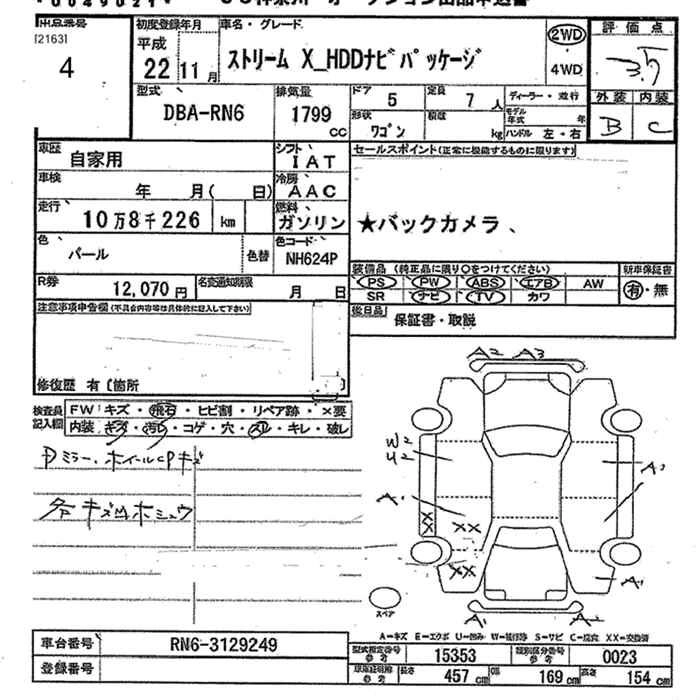 出品番号
[2163]
4
初度登録年月
平成
22 11月
車名・グレード
ストリーム X_HDDナビパッケージ
2WD
4WD
評価点
3.5
外装 内装
B C
型式
DBA-RN6
排気量
1799 CC
ドア 5
定員 7人
形状 ワゴン
積載 kg
ディーラー・並行
モデル年式 年
ハンドル 左・右
車歴
自家用
シフト
IAT
車検
年 月( 日)
冷房
AAC
走行
10万8千226 km
燃料
ガソリン
色
パール
色替
色コード
NH624P
R券
12,070円
名変通知期限
月 日
セールスポイント(正常に機能するものに限ります)
★バックカメラ、
装備品 (純正品に限り○をつけてください)
PS PW ABS エアB AW
SR ナビ TV カワ
新車保証書
有・無
後日品
保証書・取説
注意事項申告欄(不具合内容等は具体的に記入して下さい)
修復歴 有〔箇所
検査員記入欄
FW キズ・飛石・ヒビ割・リペア跡・×要
内装 キズ・汚れ・コゲ・穴・スレ・キレ・破レ
Pミラー、ホイールCPキズ
各所 キズ凹ホシュウ
A2 A3
W2
U2
A1
A1
XX
XX
XX
A1
A1
A2
スペア
A=キズ E=エクボ U=凹み W=板修跡 S=サビ C=腐食 XX=交換済
車台番号 RN6-3129249
登録番号
型式指定番号 参考 15353
類別区分番号 参考 0023
車庫証明用 参考
長さ 457 cm
幅 169 cm
高さ 154 cm